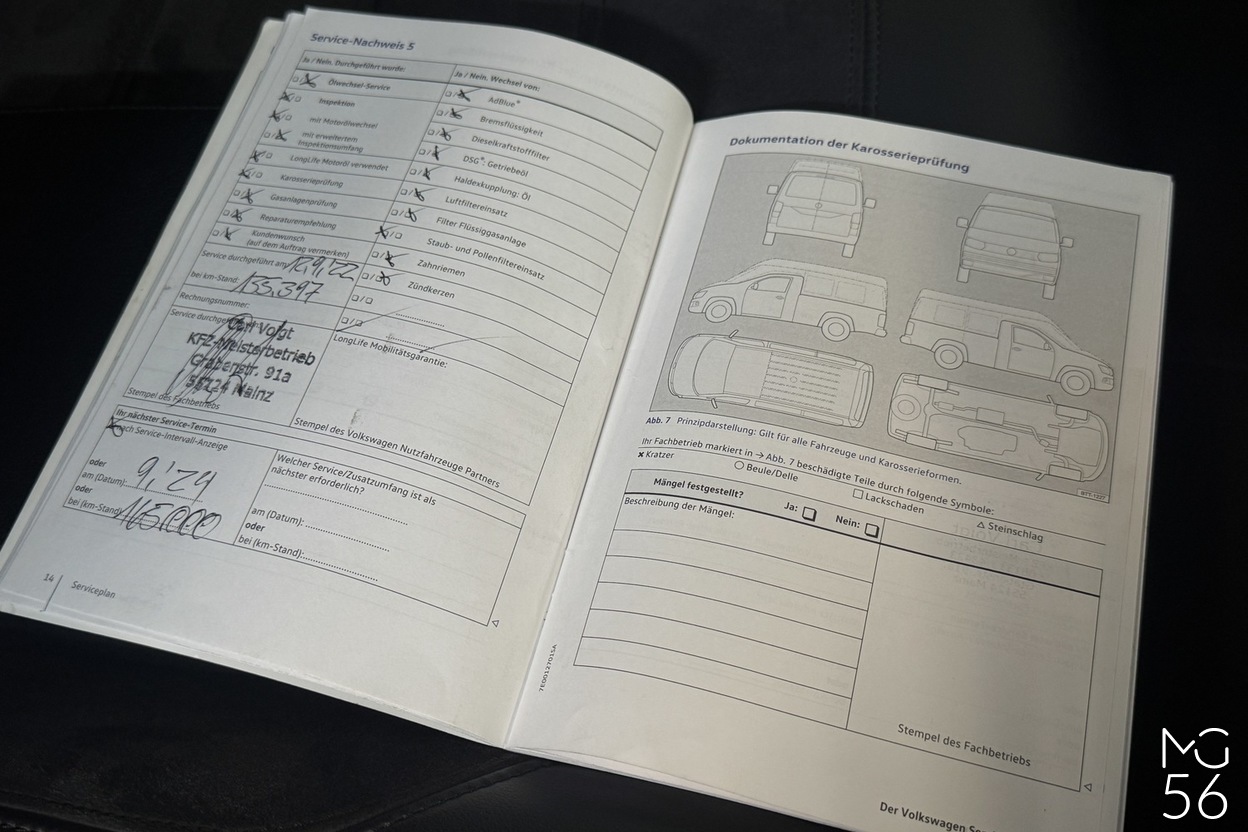 Service-Nachweis 5
Ja / Nein. Durchgeführt wurde:
Ölwechsel-Service
Inspektion
mit Motorölwechsel
mit erweitertem
Inspektionsumfang
LongLife Motoröl verwendet
Karosserieprüfung
Gasanlagenprüfung
Reparaturempfehlung
Kundenwunsch
(auf dem Auftrag vermerken)
Service durchgeführt am: 12,9,'22
bei km-Stand: 155.397
Rechnungsnummer:
Service durchgeführt
Carl Voigt
KFZ-Meisterbetrieb
Grabenstr. 91a
55124 Mainz
Stempel des Fachbetriebs
Ja / Nein. Wechsel von:
AdBlue®
Bremsflüssigkeit
Dieselkraftstofffilter
DSG®: Getriebeöl
Haldexkupplung: Öl
Luftfiltereinsatz
Filter Flüssiggasanlage
Staub- und Pollenfiltereinsatz
Zahnriemen
Zündkerzen
LongLife Mobilitätsgarantie:
Stempel des Volkswagen Nutzfahrzeuge Partners
Ihr nächster Service-Termin
nach Service-Intervall-Anzeige
oder
am (Datum): 9,'24
oder
bei (km-Stand)
Welcher Service/Zusatzumfang ist als
nächster erforderlich?
am (Datum):
oder
bei (km-Stand):
14
Serviceplan
Dokumentation der Karosserieprüfung
B7T-1227
Abb. 7 Prinzipdarstellung: Gilt für alle Fahrzeuge und Karosserieformen.
Ihr Fachbetrieb markiert in → Abb. 7 beschädigte Teile durch folgende Symbole:
× Kratzer
○ Beule/Delle
□ Lackschaden
△ Steinschlag
Mängel festgestellt?
Ja: □
Nein: □
Beschreibung der Mängel:
Stempel des Fachbetriebs
7E0012701SA
Der Volkswagen
MG
56